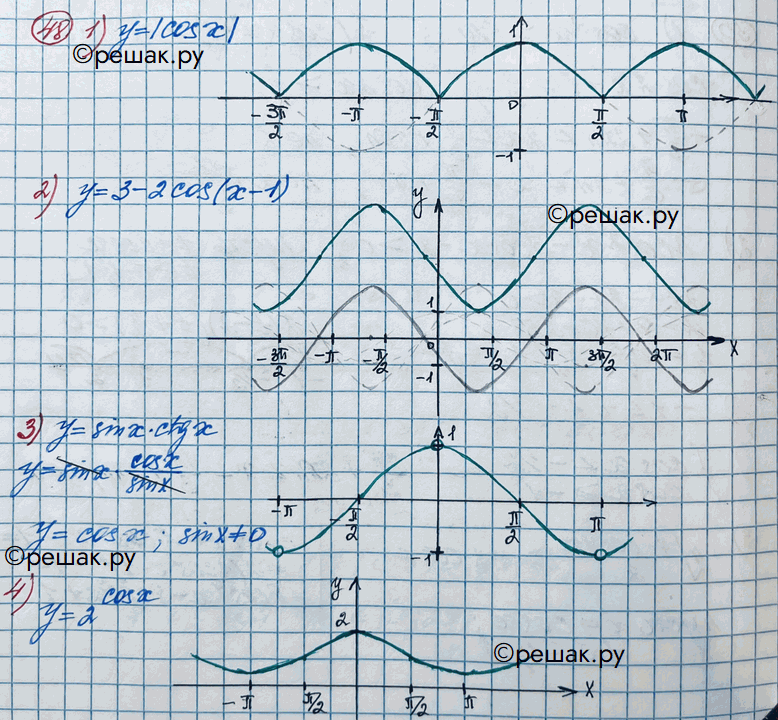 48 1) y=|cosx|
©решак.ру
1
0
-3π/2 -π -π/2 π/2 π
-1
2) y=3-2cos(x-1)
y
©решак.ру
1
0 x
-3π/2 -π -π/2 π/2 π 3π/2 2π
-1
3) y=sinx·ctgx
y=sinx·cosx/sinx
1
-π -π/2 π/2 π
y=cosx; sinx≠0
-1
©решак.ру
4) y=2^cosx
y
2
©решак.ру
-π π/2 π/2 π x